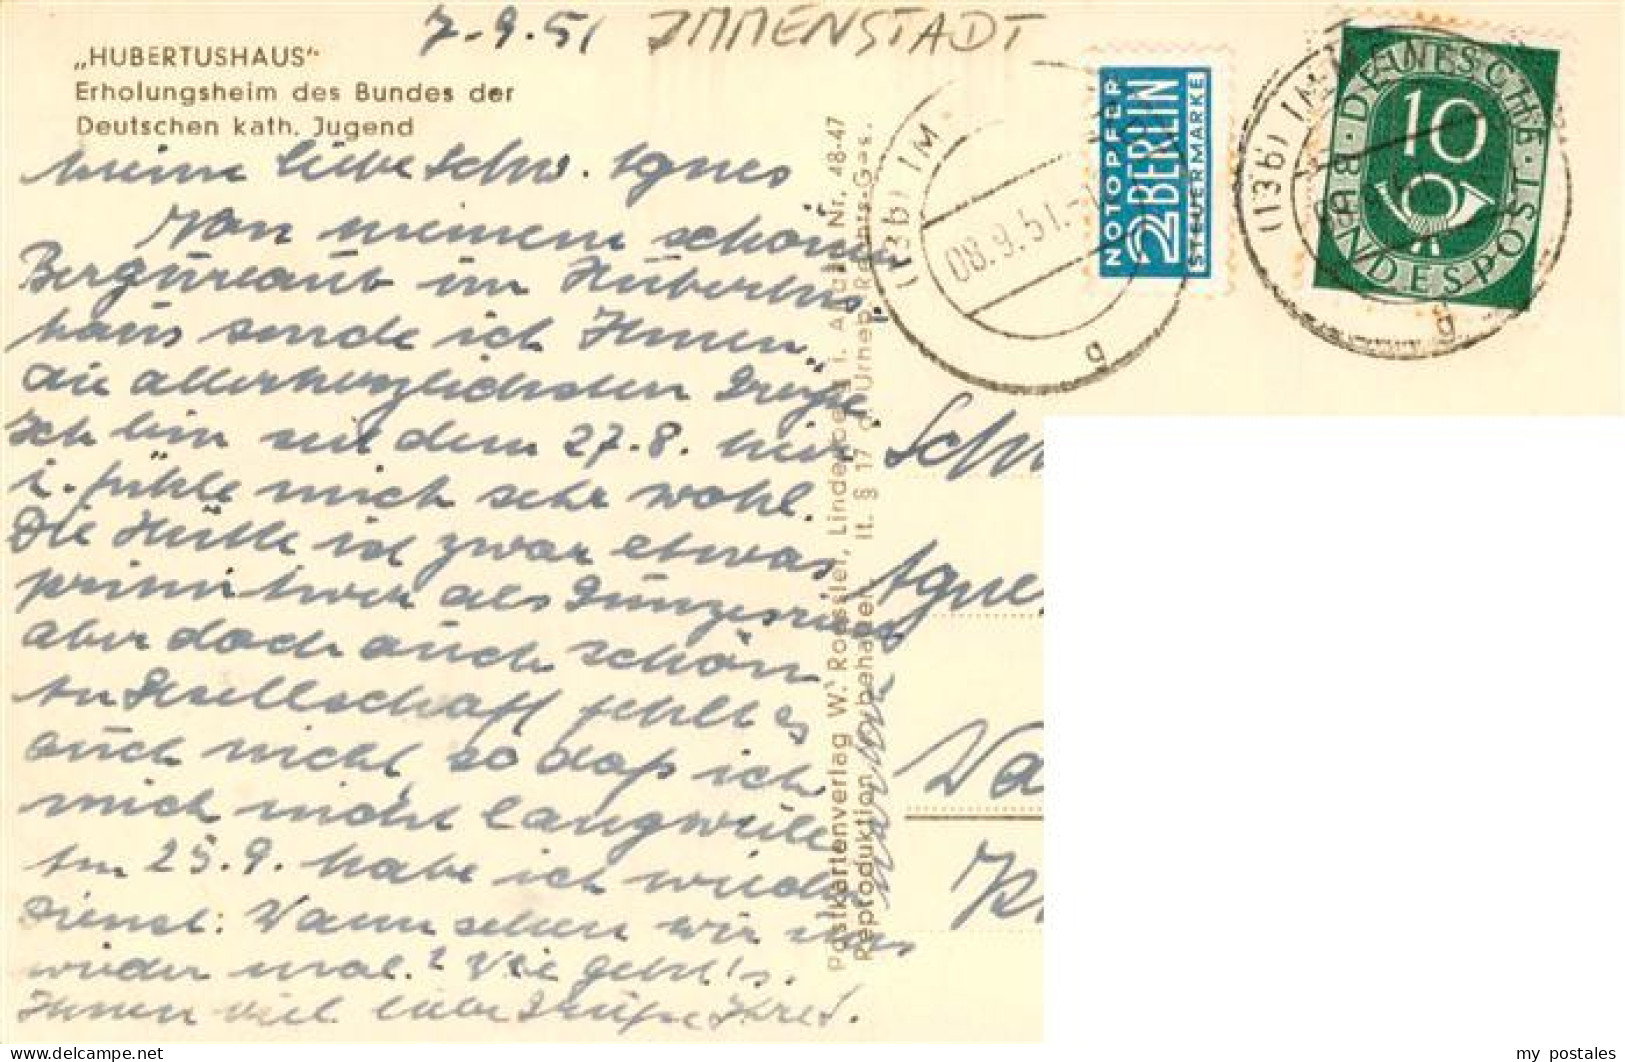 7.9.51 IMMENSTADT
„HUBERTUSHAUS"
Erholungsheim des Bundes der
Deutschen kath. Jugend
Meine liebe Schw. Agnes
Von meinem schönen
Bergurlaub im Hubertus
haus sende ich Ihnen
die allerherzlichsten Grüße.
Ich bin seit dem 27.8. hier
u. fühle mich sehr wohl.
Die Hütte ist zwar etwas
primitiver als
aber doch auch schön
An Gesellschaft fehlt es
auch nicht so daß ich
mich nicht langweile
Am 25.9. habe ich wieder
Dienst. Wann sehen wir uns
wieder mal? Wie geht's.
Ihnen viel liebe Grüße Ihre
Postkartenverlag W. Roessler, Lindenberg i. Allgäu Nr. 48-47
Reproduktion vorbehalten lt. § 17 d. Urheb.-Rechts-Ges.
(13b) IM
08.9.51.
g
NOTOPFER
2 BERLIN
STEUERMARKE
(13b) IMMEN
g
DEUTSCHE BUNDESPOST
10
Sch
Agne
Wa